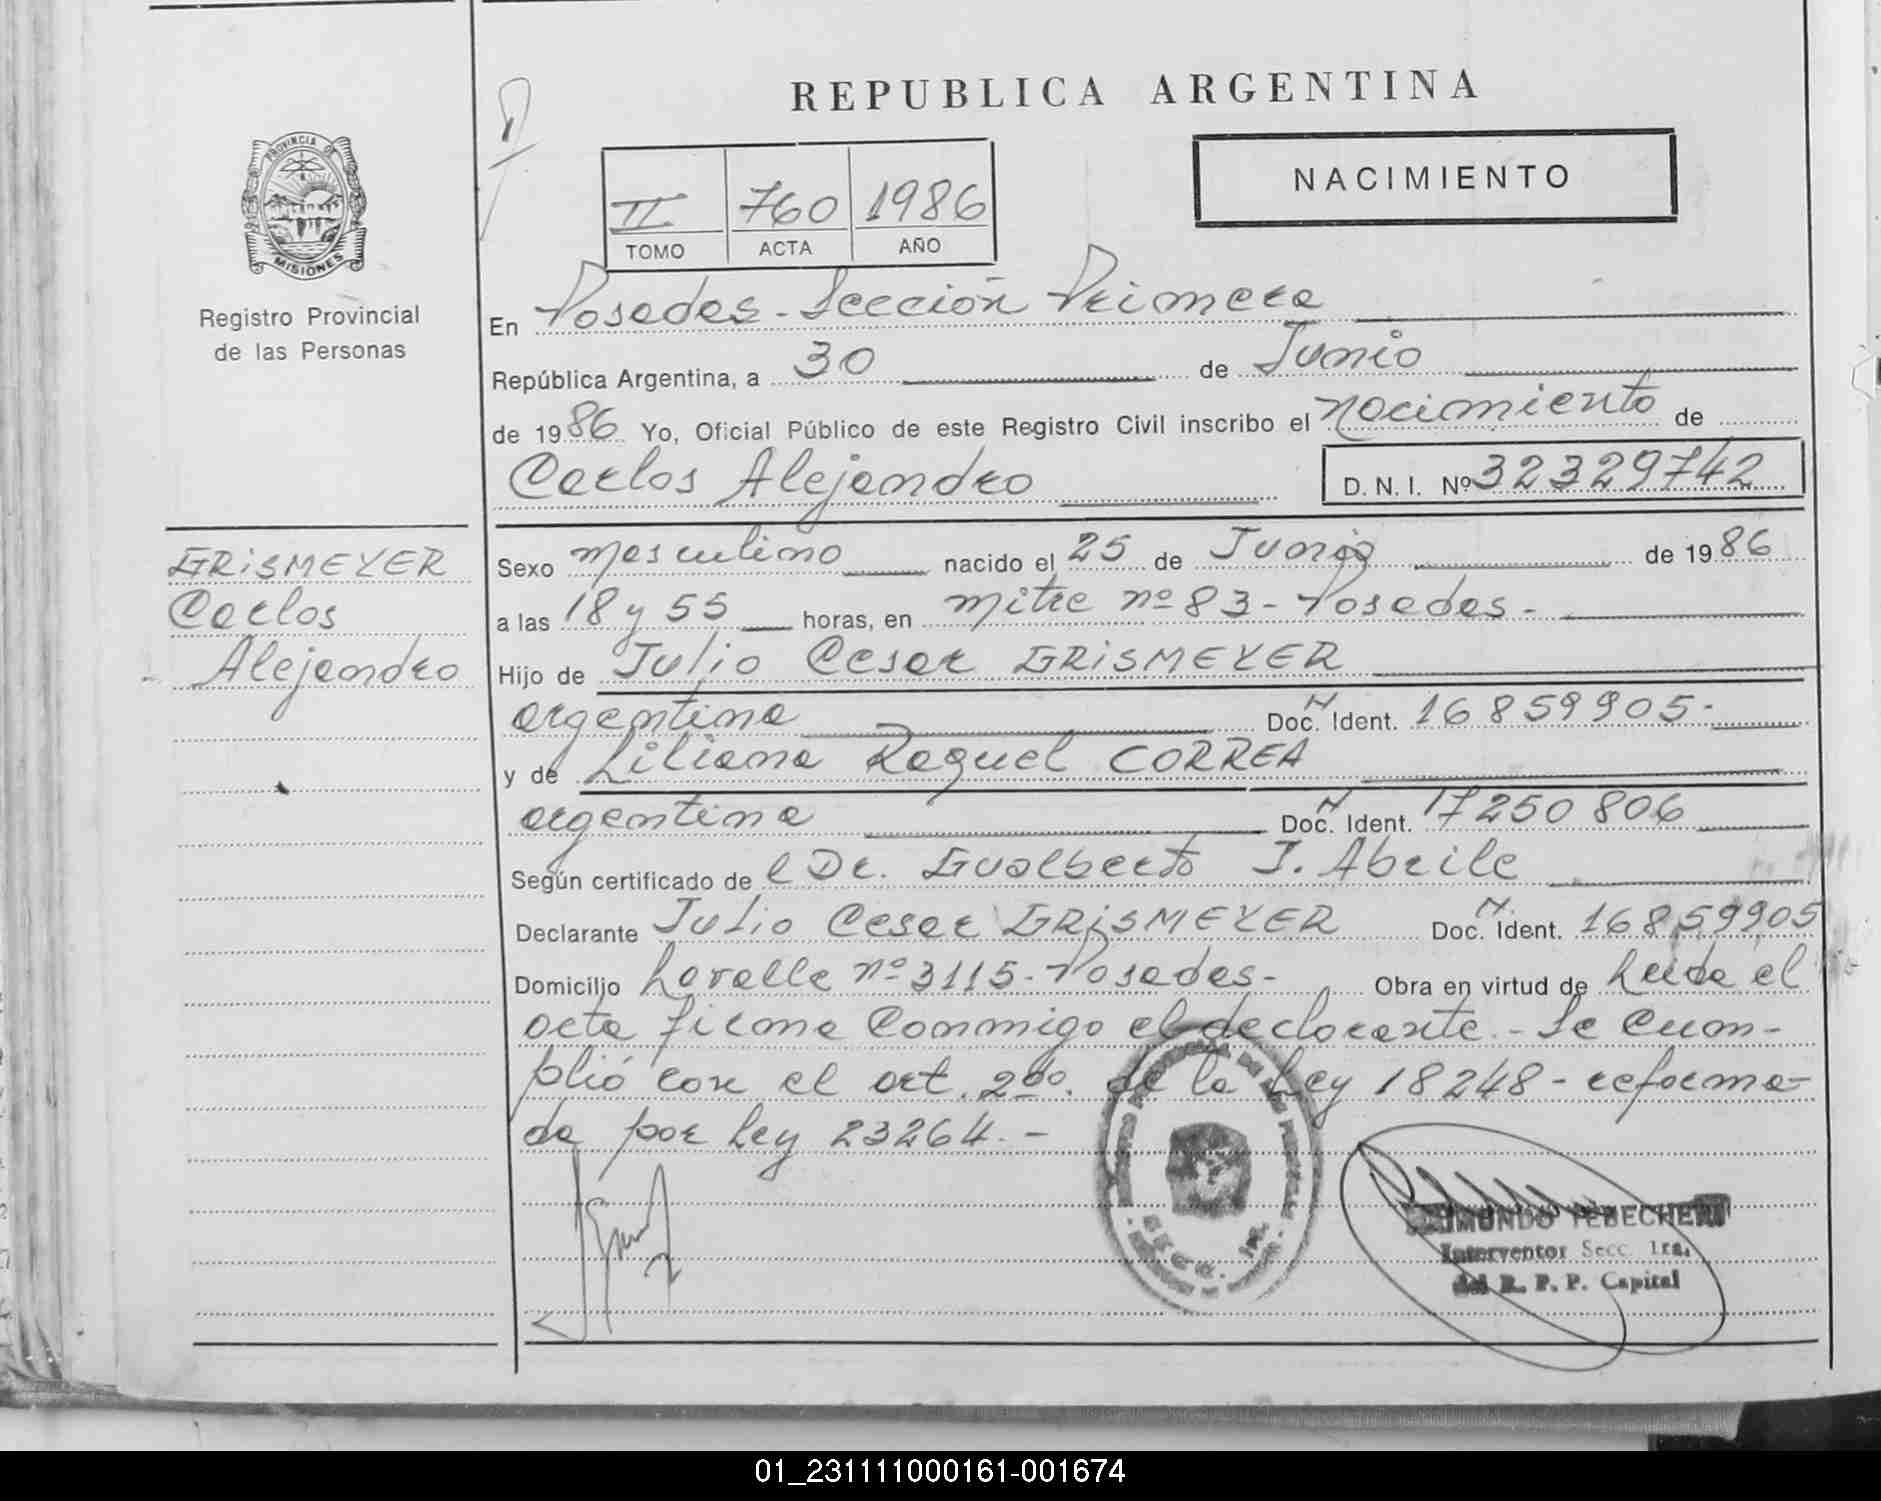 REPUBLICA ARGENTINA
PROVINCIA DE
MISIONES
Registro Provincial
de las Personas
NACIMIENTO
II 760 1986
TOMO ACTA AÑO
En Posadas - Sección Primera
República Argentina, a 30 de Junio
de 1986 Yo, Oficial Público de este Registro Civil inscribo el nacimiento de
Carlos Alejandro D. N. I. Nº 32329742
GRISMEYER
Carlos
Alejandro
Sexo masculino nacido el 25 de Junio de 1986
a las 18 y 55 horas, en mitre nº 83 - Posadas -
Hijo de Julio Cesar GRISMEYER
argentina Doc. N. Ident. 16859905-
y de Liliana Raquel CORREA
argentina Doc. N. Ident. 17250806
Según certificado de l Dr. Gualberto J. Abrile
Declarante Julio Cesar GRISMEYER Doc. N. Ident. 16859905
Domicilio Lavalle nº 3115 - Posadas - Obra en virtud de Leída el
acta firma Conmigo el declarante. - Se Cum-
plió con el art. 2do. de la Ley 18248 - reforma-
da por Ley 23264. -
Interventor Secc. 1ra.
del R. P. P. Capital
01_231111000161-001674